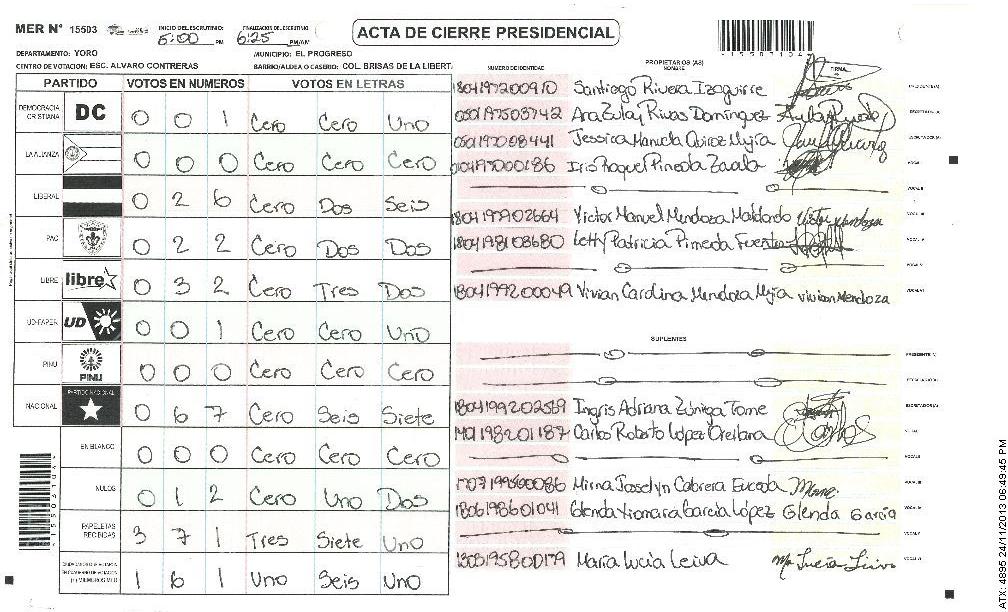 MER N° 15503 INICIO DEL ESCRUTINIO: 5:00 PM FINALIZACION DEL ESCRUTINIO: 6:25 PM/AM
ACTA DE CIERRE PRESIDENCIAL
DEPARTAMENTO: YORO MUNICIPIO: EL PROGRESO
CENTRO DE VOTACION: ESC. ALVARO CONTRERAS BARRIO/ALDEA O CASERIO: COL. BRISAS DE LA LIBERT
PARTIDO VOTOS EN NUMEROS VOTOS EN LETRAS
DEMOCRACIA CRISTIANA DC 0 0 1 Cero Cero Uno
LA ALIANZA 0 0 0 Cero Cero Cero
LIBERAL 0 2 6 Cero Dos Seis
PAC 0 2 2 Cero Dos Dos
LIBRE libre 0 3 2 Cero Tres Dos
UD-FAPER UD 0 0 1 Cero Cero Uno
PINU PINU 0 0 0 Cero Cero Cero
NACIONAL PARTIDO NACIONAL 0 6 7 Cero Seis Siete
EN BLANCO 0 0 0 Cero Cero Cero
NULOS 0 1 2 Cero Uno Dos
PAPELETAS RECIBIDAS 3 7 1 Tres Siete Uno
1 6 1 Uno Seis Uno
NUMERO DE IDENTIDAD PROPIETARIOS (AS) NOMBRE FIRMA
1804197200910 Santiago Rivera Izaguirre
0501197503742 Ara Zulay Rivas Dominguez
Jessica
Iris Raquel Pineda Zavala
1804197902664 Victor Manuel Mendoza Maldonado Victor Mendoza
1804198108680 Letty Patricia Pineda Fuentes
1804199200049 Vivian Carolina Mendoza Mejia Vivian Mendoza
SUPLENTES
1804199202569 Ingris Adriana Zúniga Tome
Carlos Roberto López Orellana
1707199500086 Mirna Josselyn Cabrera
1806198601041 Glenda Xiomara Garcia López Glenda Garcia
1303195800179 Maria Lucia Leiva
ATX: 4895 24/11/2013 06:49:45 PM